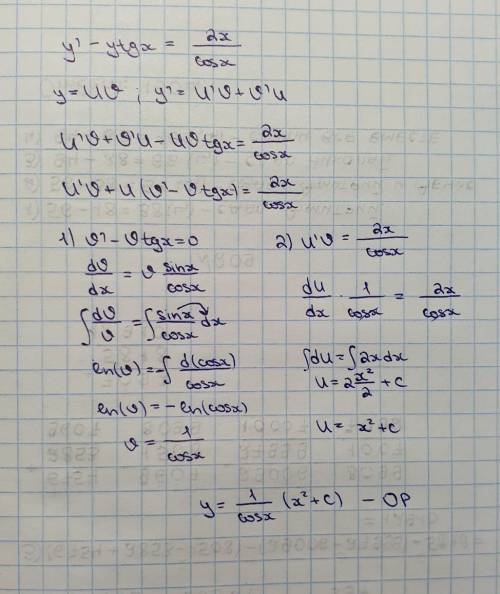 y' - ytgx = 2x/cosx
y = UV ; y' = U'V + V'U
U'V + V'U - UVtgx = 2x/cosx
U'V + U(V' - Vtgx) = 2x/cosx
1) V' - Vtgx = 0
dV/dx = V sinx/cosx
∫ dV/V = ∫ sinx/cosx dx
ln(V) = -∫ d(cosx)/cosx
ln(V) = -ln(cosx)
V = 1/cosx
2) U'V = 2x/cosx
dU/dx · 1/cosx = 2x/cosx
∫dU = ∫2xdx
U = 2 x²/2 + C
U = x² + C
y = 1/cosx (x² + C) - OP